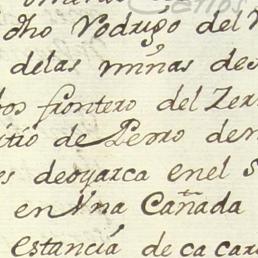 dho Rodrigo del
delas minas de
frontero del Zer
sitio de Perro de
deoyarca enel s
en Una Cañada
estancia de ca car